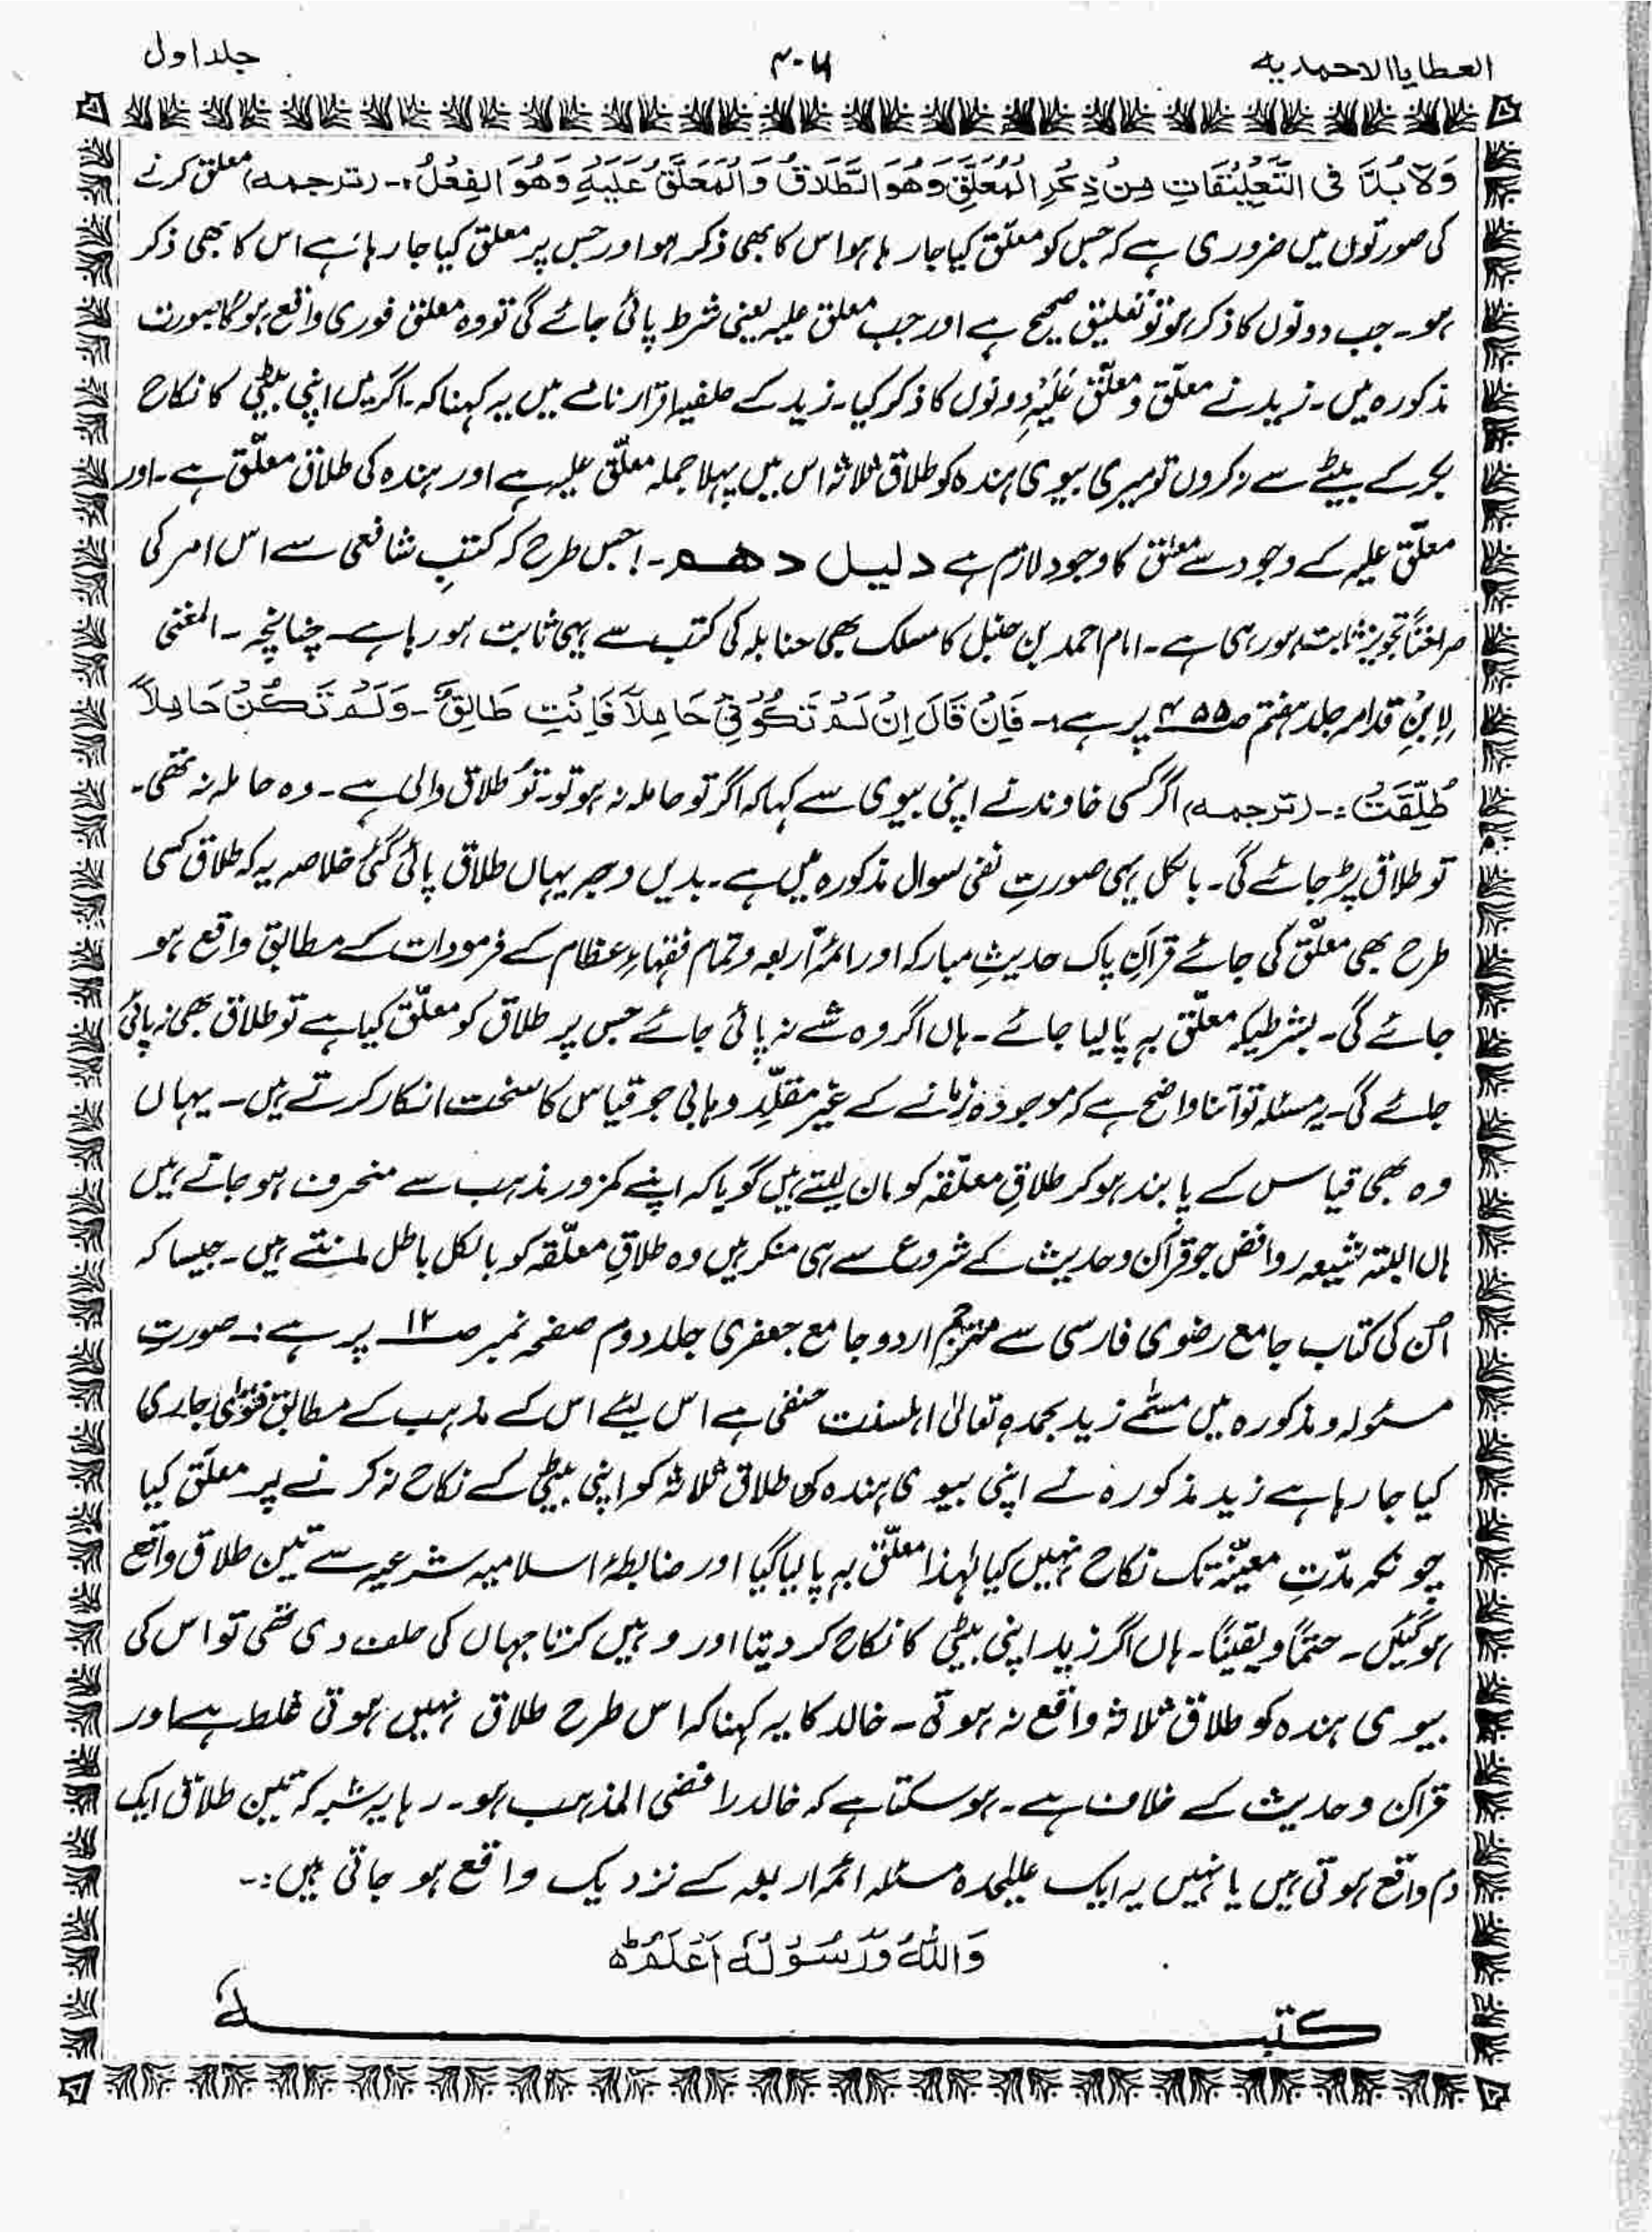 العطایا الاحمدیہ
۳۰۶
جلد اول
وَلَا بُدَّ فِی التَّعْلِیْقَاتِ مِنْ ذِکْرِ الْمُعَلَّقِ وَھُوَ الطَّلَاقُ وَالْمُعَلَّقُ عَلَیْہِ وَھُوَ الْفِعْلُ :۔ (ترجمہ) معلق کرنے
کی صورتوں میں ضروری ہے کہ جس کو معلّق کیا جا رہا ہو اس کا بھی ذکر ہو اور جس پر معلق کیا جا رہا ہے اس کا بھی ذکر
ہو۔ جب دونوں کا ذکر ہو تو تعلیق صحیح ہے اور جب معلق علیہ یعنی شرط پائی جائے گی تو وہ معلق فوری واقع ہو گا بصورت
مذکورہ میں۔ زید نے معلّق و معلّق عَلَیْہِ دونوں کا ذکر کیا۔ زید کے حلفیہ اقرار نامے میں یہ کہنا کہ۔ اگر میں اپنی بیٹی کا نکاح
بکر کے بیٹے سے نہ کروں تو میری بیوی ہندہ کو طلاق ثلاثہ اس میں پہلا جملہ معلّق علیہ ہے اور ہندہ کی طلاق معلّق ہے۔ اور
معلّق علیہ کے وجود سے معلق کا وجود لازم ہے دلیل دھم۔! جس طرح کہ کتبِ شافعی سے اس امر کی
صراحتاً تجویز ثابت ہو رہی ہے۔ امام احمد بن حنبل کا مسلک بھی حنابلہ کی کتب سے یہی ثابت ہو رہا ہے۔ چنانچہ۔ المغنی
لِابْنِ قدامہ جلد ہفتم صـ۴۵۵ پر ہے :۔ فَاِنْ قَالَ اِنْ لَمْ تَکُوْنِیْ حَامِلاً فَاَنْتِ طَالِقٌ۔ وَلَمْ تَکُنْ حَامِلاً
طُلِّقَتْ :۔ (ترجمہ) اگر کسی خاوند نے اپنی بیوی سے کہا کہ اگر تو حاملہ نہ ہو تو۔ تُو طلاق والی ہے۔ وہ حاملہ نہ تھی۔
تو طلاق پڑ جائے گی۔ بالکل یہی صورتِ نفی سوال مذکورہ میں ہے۔ بدیں وجہ یہاں طلاق پائی گئی خلاصہ یہ کہ طلاق کسی
طرح بھی معلّق کی جائے قرآنِ پاک حدیثِ مبارکہ اور ائمہ اربعہ و تمام فقہاءِ عظام کے فرمودات کے مطابق واقع ہو
جائے گی۔ بشرطیکہ معلّق بہ پا لیا جائے۔ ہاں اگر وہ شے نہ پائی جائے جس پر طلاق کو معلّق کیا ہے تو طلاق بھی نہ پائی
جائے گی۔ یہ مسئلہ تو اتنا واضح ہے کہ موجودہ زمانے کے غیر مقلّد وہابی جو قیاس کا سخت انکار کرتے ہیں۔ یہاں
وہ بھی قیاس کے پابند ہو کر طلاقِ معلّقہ کو مان لیتے ہیں گویا کہ اپنے کمزور مذہب سے منحرف ہو جاتے ہیں
ہاں البتہ شیعہ روافض جو قرآن و حدیث کے شروع سے ہی منکر ہیں وہ طلاقِ معلّقہ کو بالکل باطل مانتے ہیں۔ جیسا کہ
اُن کی کتاب جامع رضوی فارسی سے مترجم اردو جامع جعفری جلد دوم صفحہ نمبر صـ۱۲ پر ہے :۔ صورتِ
مسئولہ و مذکورہ میں مسمّٰے زید بحمدہٖ تعالیٰ اہلسنت حنفی ہے اس لیئے اس کے مذہب کے مطابق فتوٰی جاری
کیا جا رہا ہے زید مذکورہ نے اپنی بیوی ہندہ کو طلاق ثلاثہ کو اپنی بیٹی کے نکاح نہ کرنے پر معلّق کیا
چونکہ مدّتِ معیّنہ تک نکاح نہیں کیا لہٰذا معلّق بہ پا لیا گیا اور ضابطۂ اسلامیہ شرعیہ سے تین طلاق واقع
ہو گئیں۔ حتماً و یقیناً۔ ہاں اگر زید اپنی بیٹی کا نکاح کر دیتا اور وہیں کرتا جہاں کی حلف دی تھی تو اس کی
بیوی ہندہ کو طلاق ثلاثہ واقع نہ ہوتی۔ خالد کا یہ کہنا کہ اس طرح طلاق نہیں ہوتی غلط ہے اور
قرآن و حدیث کے خلاف ہے۔ ہو سکتا ہے کہ خالد رافضی المذہب ہو۔ رہا یہ شبہ کہ تین طلاق ایک
دم واقع ہوتی ہیں یا نہیں یہ ایک علیٰحدہ مسئلہ ائمہ اربعہ کے نزدیک واقع ہو جاتی ہیں :۔
وَاللّٰہُ وَرَسُوْلُہٗ اَعْلَمُ ط
کتبہ